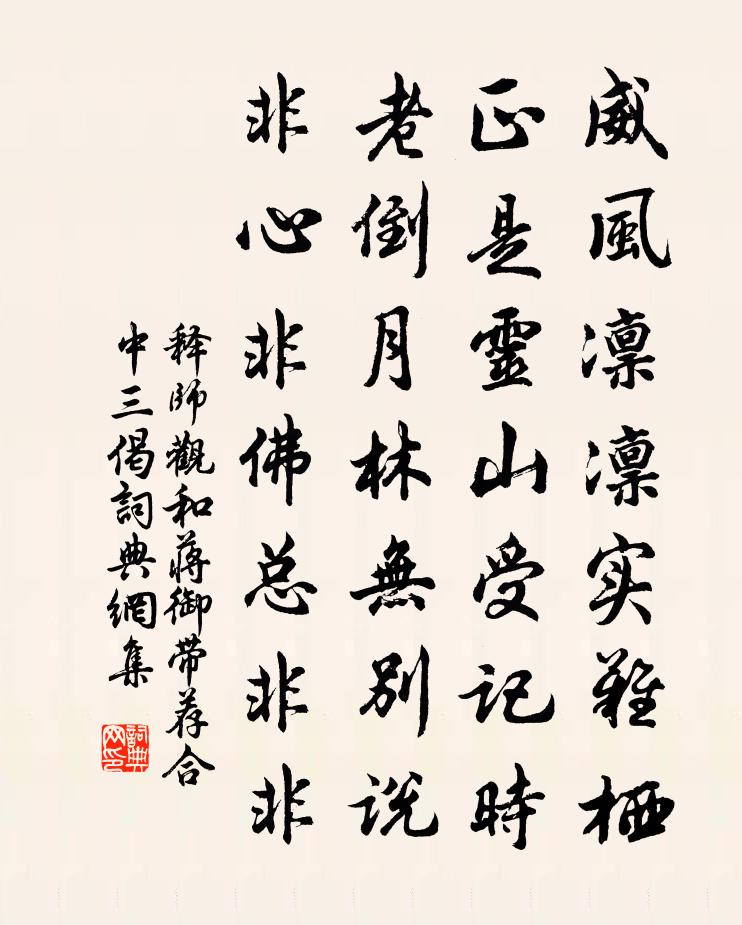 威風凛凛实難栖
正是靈山受記時
老倒月林無別説
非心非佛总非非
释師觀和蔣御带荐合
中三偈詞典網集
詞典网印